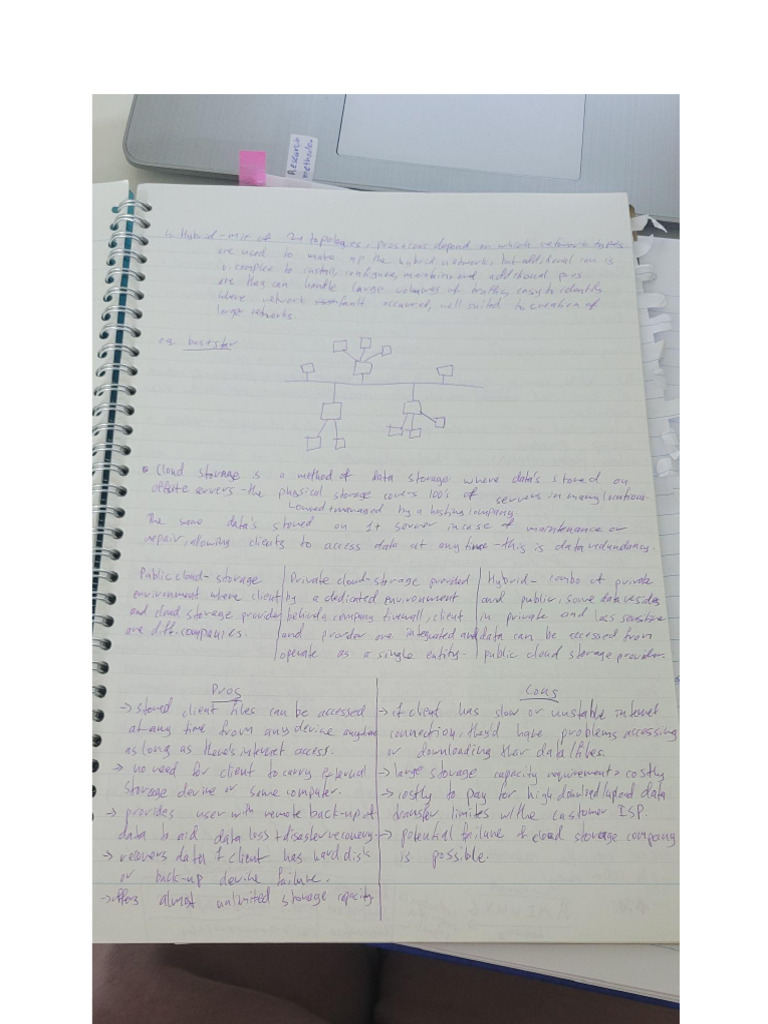 Research
methods
↳ Hybrid - mix of 2+ topologies, pros + cons depend on which network types
are used to make up the hybrid network, but additional con is
complex to install, configure, maintain and additional pros
are they can handle large volumes of traffic, easy to identify
where network fault occurred, well suited to creation of
larger networks.
e.g. bus + star
• Cloud storage is a method of data storage where data's stored on
offsite servers - the physical storage covers 100's of servers in many locations
↳ owned + managed by a hosting company
The same data's stored on 1+ server incase of maintenance or
repair, allowing clients to access data at any time - this is data redundancy.
Public cloud - storage
environment where client
and cloud storage provider
are diff. companies.
Private cloud - storage provided
by a dedicated environment
behind company firewall, client
and provider are integrated and
operate as a single entity.
Hybrid - combo of private
and public, some data resides
in private and less sensitive
data can be accessed from
public cloud storage provider.
Pros
→ stored client files can be accessed
at any time from any device anywhere
as long as there's internet access.
→ no need for client to carry external
storage device or same computer.
→ provides user with remote back-up of
data to aid data loss + disaster recovery
→ recovers data if client has hard disk
or back-up device failure.
→ offers almost unlimited storage capacity
Cons
→ if client has slow or unstable internet
connection, they'd have problems accessing
or downloading their data/files.
→ large storage capacity requirement > costly
→ costly to pay for high download/upload data
transfer limits w/the customer ISP.
→ potential failure of cloud storage company
is possible.